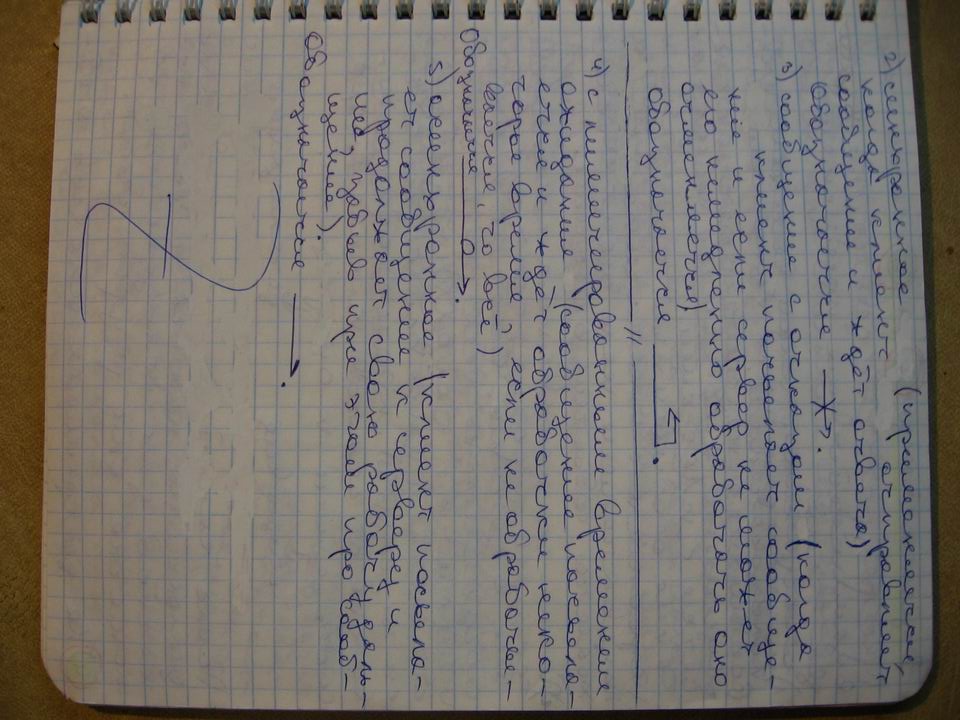 2) синхронное (применяется,
когда клиент отправляет
сообщение и ждёт ответа)
Обозначение
3) сообщение с отказом (когда
клиент посылает сообще-
ние и если сервер не может
его немедленно обработать оно
отменяется)
обозначается
4) с лимитированным временем
ожидания (сообщение посыла-
ется и ждёт обработки неко-
торое время, если не обработы-
вается, то всё)
Обозначение
5) асинхронное (клиент посыла-
ет сообщение к серверу и
продолжает свою работу даль-
ше, забыв при этом про сооб-
щение).
Обозначение